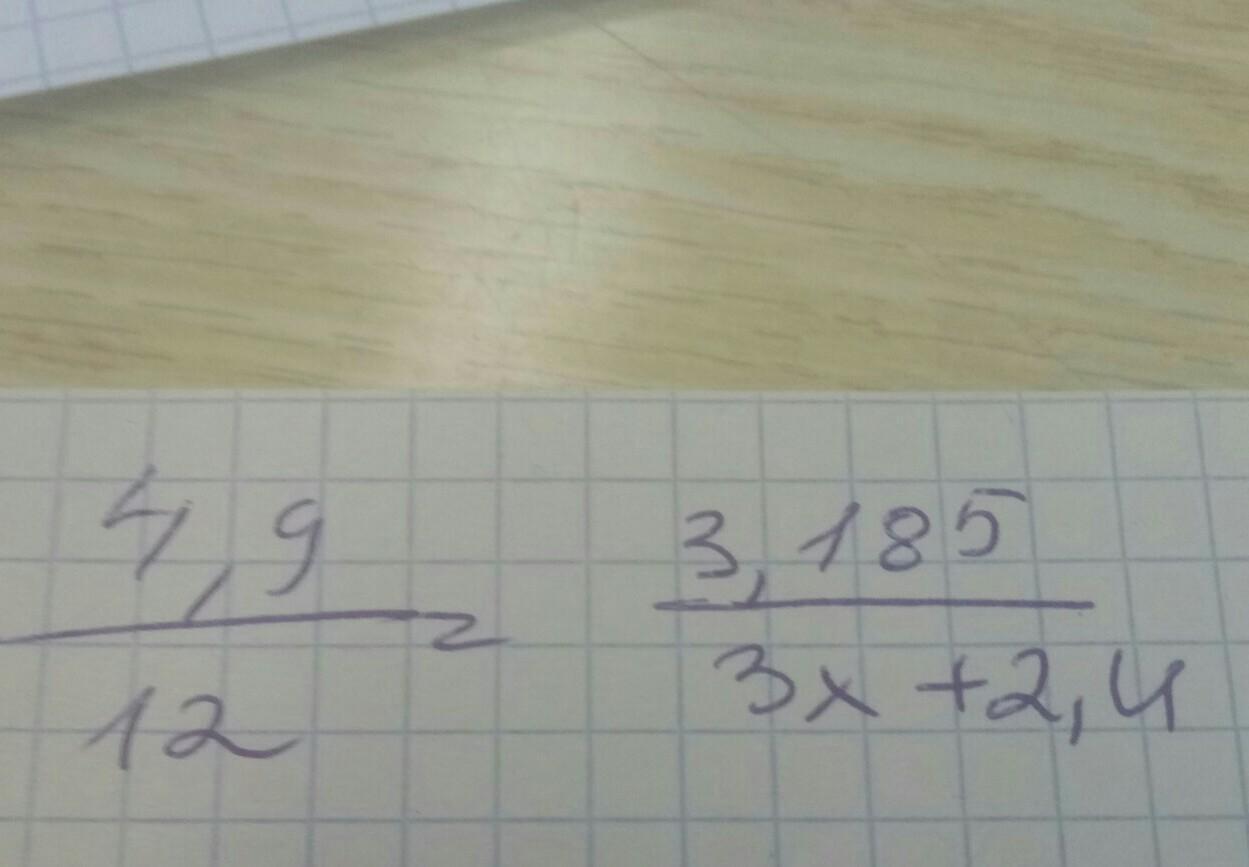 4,9 = 3,185
12 3x+2,4